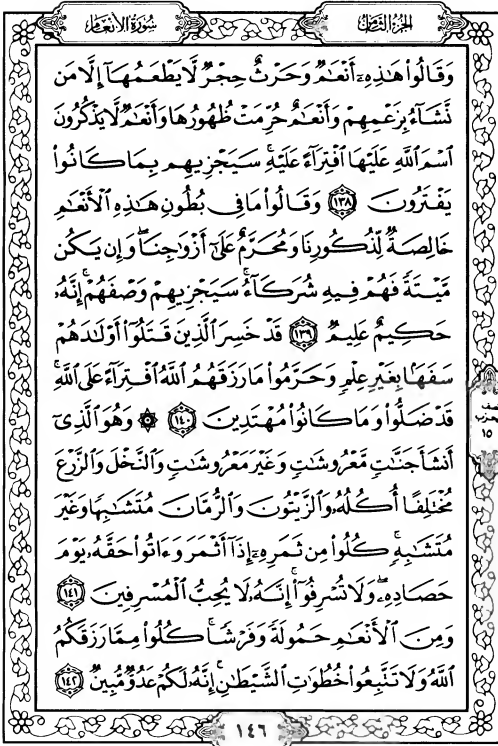 سُورَةُ الأَنْعَامِ الجُزْءُ الثَّامِنُ
وَقَالُوا۟ هَٰذِهِۦٓ أَنْعَٰمٌ وَحَرْثٌ حِجْرٌ لَّا يَطْعَمُهَآ إِلَّا مَن
نَّشَآءُ بِزَعْمِهِمْ وَأَنْعَٰمٌ حُرِّمَتْ ظُهُورُهَا وَأَنْعَٰمٌ لَّا يَذْكُرُونَ
ٱسْمَ ٱللَّهِ عَلَيْهَا ٱفْتِرَآءً عَلَيْهِ ۚ سَيَجْزِيهِم بِمَا كَانُوا۟
يَفْتَرُونَ ١٣٨ وَقَالُوا۟ مَا فِى بُطُونِ هَٰذِهِ ٱلْأَنْعَٰمِ
خَالِصَةٌ لِّذُكُورِنَا وَمُحَرَّمٌ عَلَىٰٓ أَزْوَٰجِنَا ۖ وَإِن يَكُن
مَّيْتَةً فَهُمْ فِيهِ شُرَكَآءُ ۚ سَيَجْزِيهِمْ وَصْفَهُمْ ۚ إِنَّهُۥ
حَكِيمٌ عَلِيمٌ ١٣٩ قَدْ خَسِرَ ٱلَّذِينَ قَتَلُوٓا۟ أَوْلَٰدَهُمْ
سَفَهًۢا بِغَيْرِ عِلْمٍ وَحَرَّمُوا۟ مَا رَزَقَهُمُ ٱللَّهُ ٱفْتِرَآءً عَلَى ٱللَّهِ ۚ
قَدْ ضَلُّوا۟ وَمَا كَانُوا۟ مُهْتَدِينَ ١٤٠ ۞ وَهُوَ ٱلَّذِىٓ
أَنشَأَ جَنَّٰتٍ مَّعْرُوشَٰتٍ وَغَيْرَ مَعْرُوشَٰتٍ وَٱلنَّخْلَ وَٱلزَّرْعَ
مُخْتَلِفًا أُكُلُهُۥ وَٱلزَّيْتُونَ وَٱلرُّمَّانَ مُتَشَٰبِهًا وَغَيْرَ
مُتَشَٰبِهٍ ۚ كُلُوا۟ مِن ثَمَرِهِۦٓ إِذَآ أَثْمَرَ وَءَاتُوا۟ حَقَّهُۥ يَوْمَ
حَصَادِهِۦ ۖ وَلَا تُسْرِفُوٓا۟ ۚ إِنَّهُۥ لَا يُحِبُّ ٱلْمُسْرِفِينَ ١٤١
وَمِنَ ٱلْأَنْعَٰمِ حَمُولَةً وَفَرْشًا ۚ كُلُوا۟ مِمَّا رَزَقَكُمُ
ٱللَّهُ وَلَا تَتَّبِعُوا۟ خُطُوَٰتِ ٱلشَّيْطَٰنِ ۚ إِنَّهُۥ لَكُمْ عَدُوٌّ مُّبِينٌ ١٤٢
١٤٦
١٥